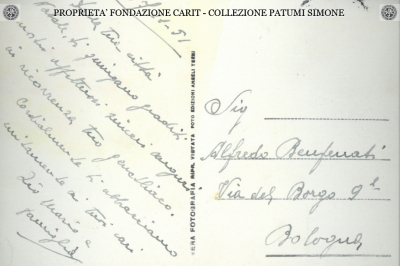 PROPRIETA' FONDAZIONE CARIT - COLLEZIONE PATUMI SIMONE
1-51
Dalla tua città
giungano graditi
nostri affettuosi sinceri auguri
in ricorrenza tuo genetliaco.
Cordialmente ti abbracciamo
unitamente ai tuoi cari
Zio Mario e
famiglia
VERA FOTOGRAFIA RIPR. VIETATA FOTO EDIZIONI ANGELI TERNI
Sig
Alfredo Benfenati
Via del Borgo 9
Bologna